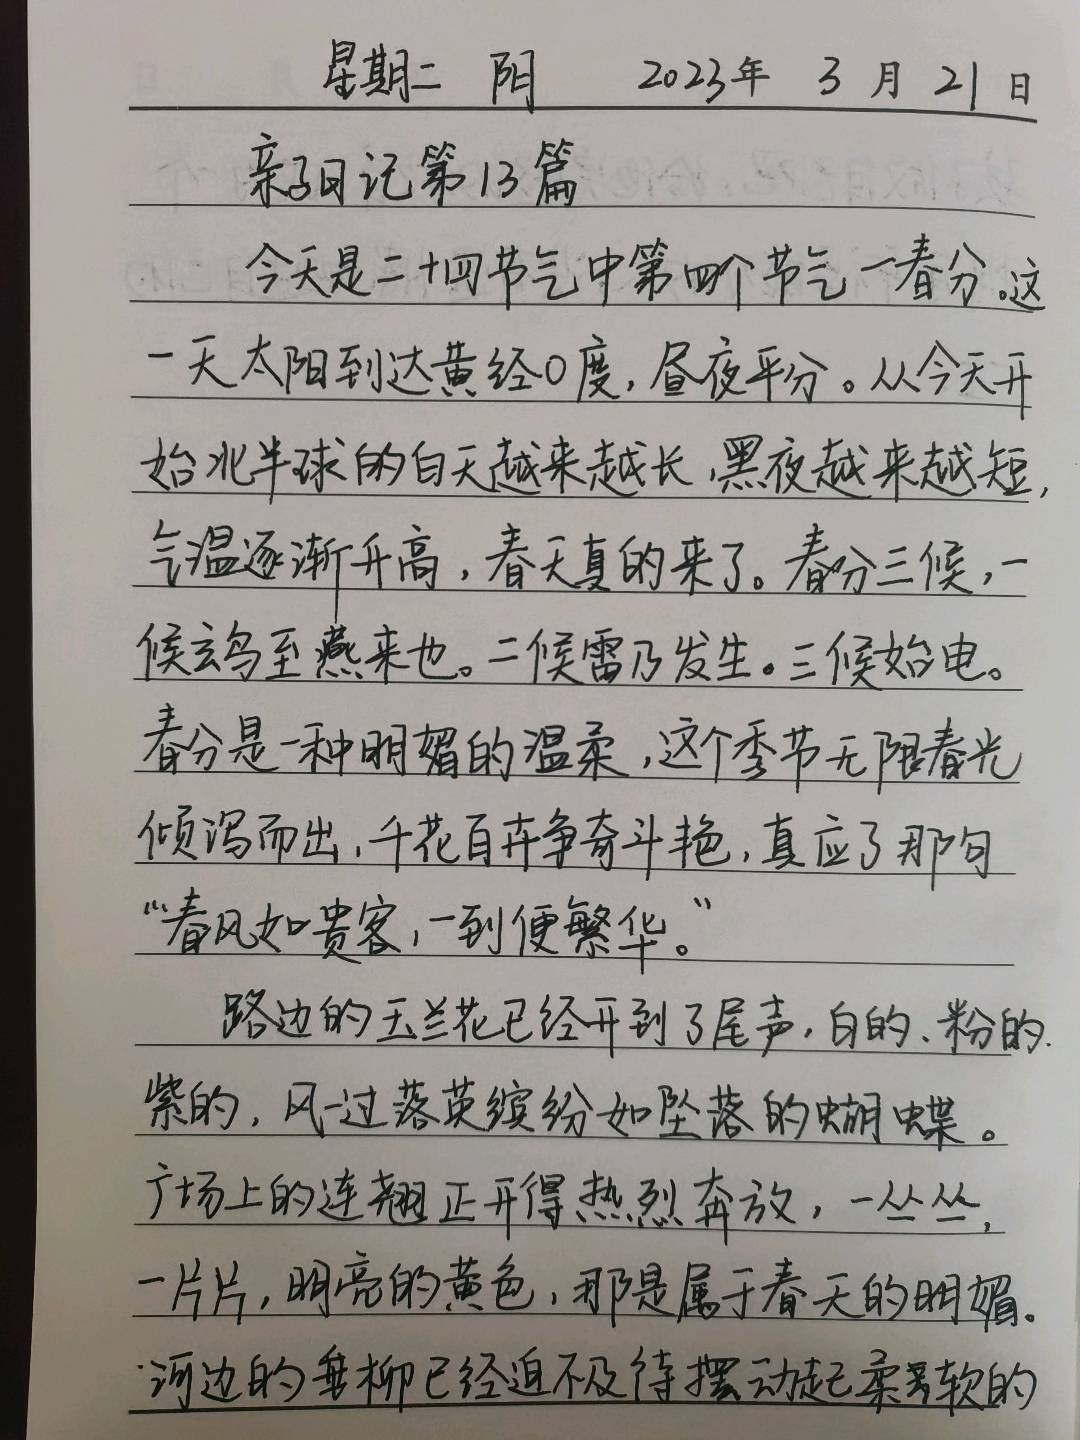 星期二 阴 2023年 3月 21日
亲子日记第13篇
今天是二十四节气中第四个节气一春分。这
一天太阳到达黄经0度，昼夜平分。从今天开
始北半球的白天越来越长，黑夜越来越短，
气温逐渐升高，春天真的来了。春分三候，一
候玄鸟至燕来也。二候雷乃发生。三候始电。
春分是一种明媚的温柔，这个季节无限春光
倾泻而出，千花百卉争奇斗艳，真应了那句
“春风如贵客，一到便繁华。”
路边的玉兰花已经开到了尾声，白的、粉的、
紫的，风一过落英缤纷如坠落的蝴蝶。
广场上的连翘正开得热烈奔放，一丛丛，
一片片，明亮的黄色，那是属于春天的明媚。
河边的垂柳已经迫不及待摆动起柔软的